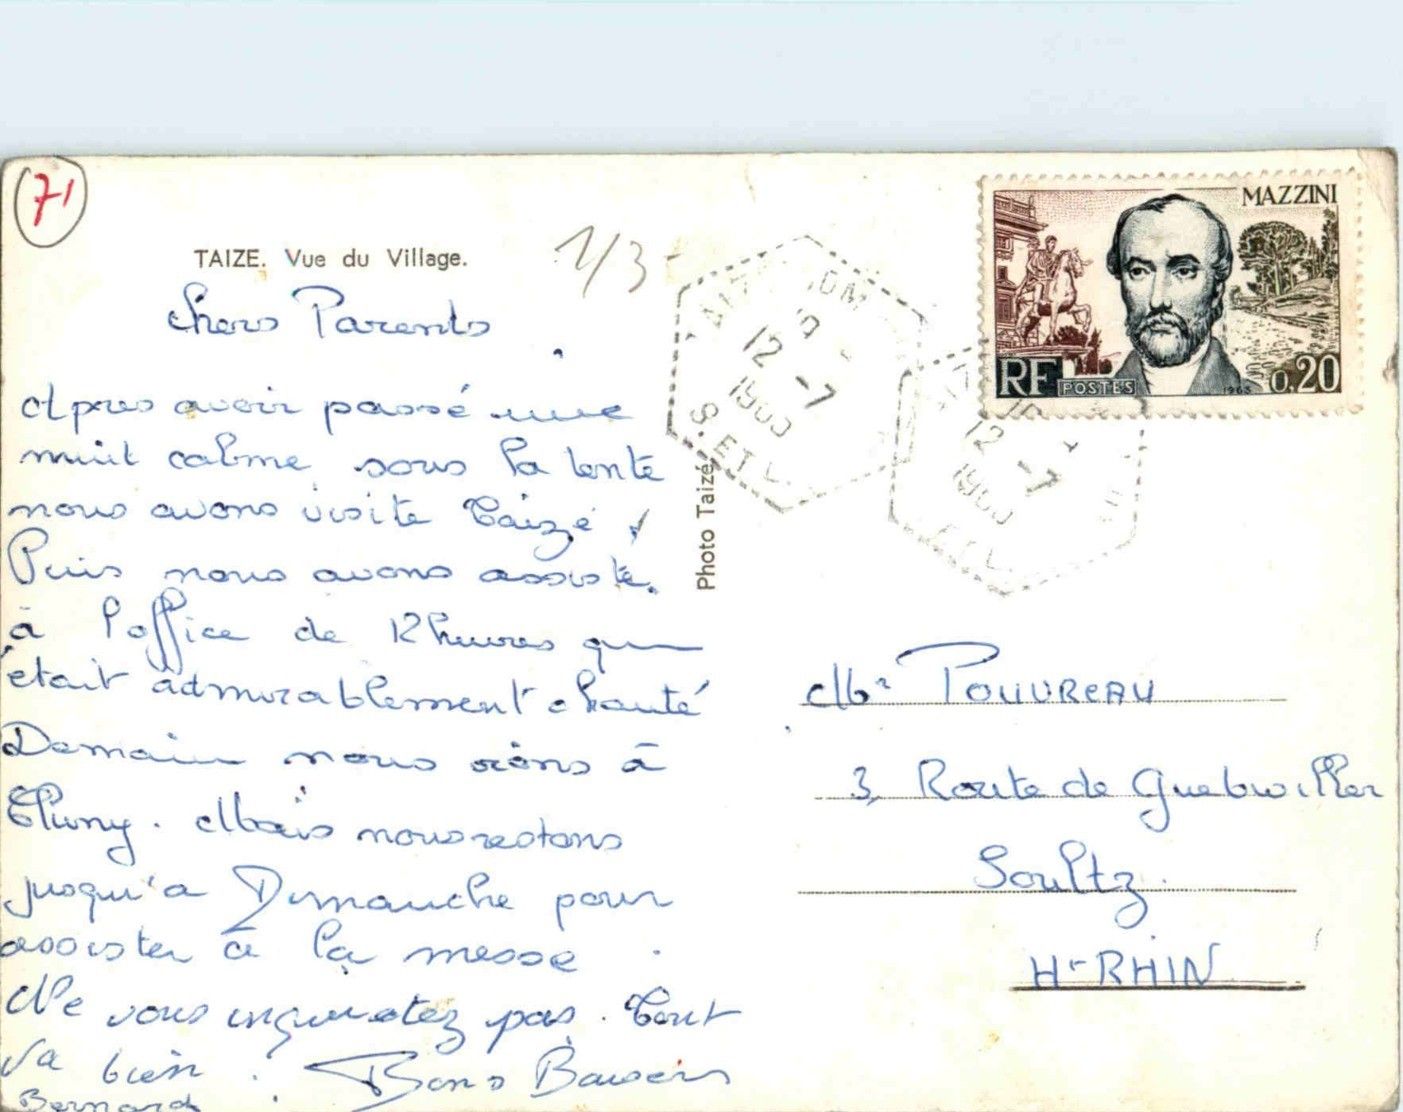 71
TAIZE. Vue du Village.
1/3
Chers Parents
Après avoir passé une
nuit calme sous la tente
nous avons visité Taizé
Puis nous avons assisté
à l'office de 12 heures qui
était admirablement chanté
Demain nous irons à
Cluny. Mais nous restons
jusqu'a Dimanche pour
assister à la messe.
Ne vous inquietez pas. Tout
va bien. Bons Baisers
Bernard
Photo Taizé
12 -7
1963
S. ET L.
12 -7
1963
MAZZINI
RF POSTES 1963 0,20
Mr POUVREAU
3, Route de Guebwiller
Soultz.
Ht-RHIN